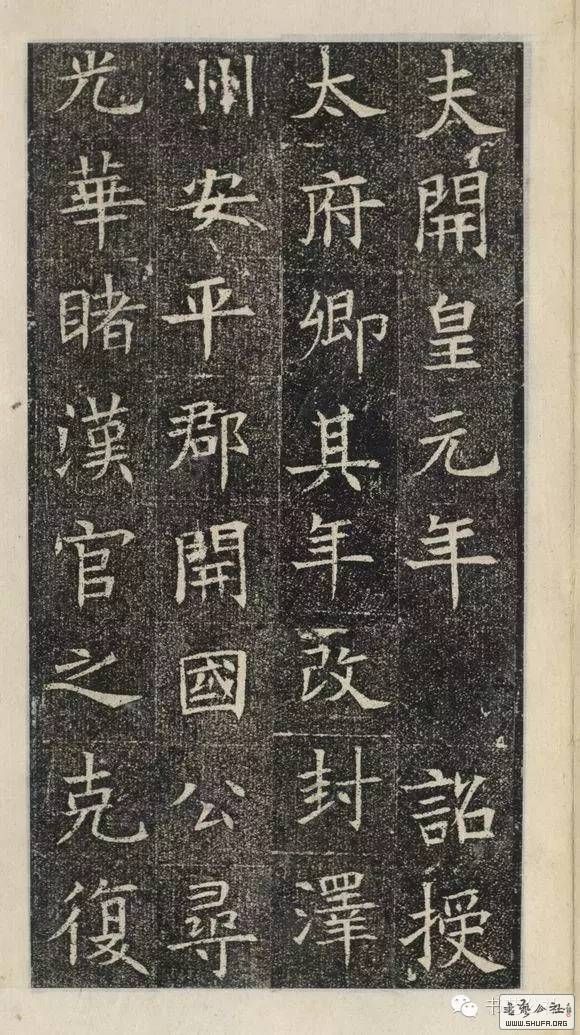 夫開皇元年 詔授
太府卿其年改封澤
州安平郡開國公尋
光華睹漢官之克復
书
WWW.SHUFA.ORG